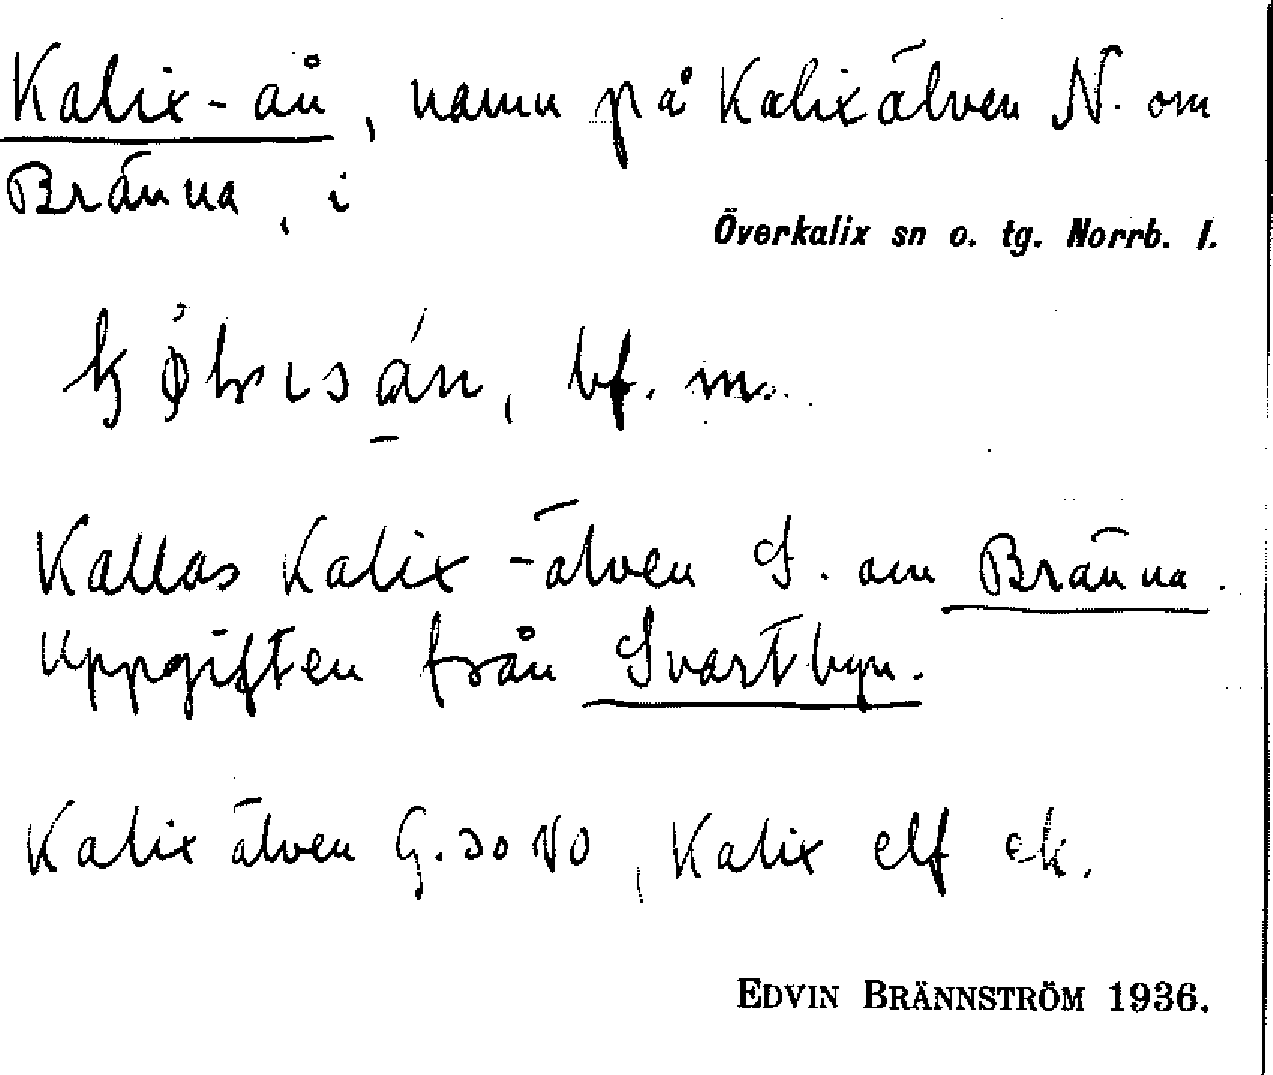 Kalix-ån, namn på Kalixälven N. om
Bränna, i
Överkalix sn o. tg. Norrb. l.
bf. m.
Kallas Kalix-älven S. om Bränna.
Uppgiften från Svartbyn.
Kalixälven G. 30 NO, Kalix elf ek.
EDVIN BRÄNNSTRÖM 1936.